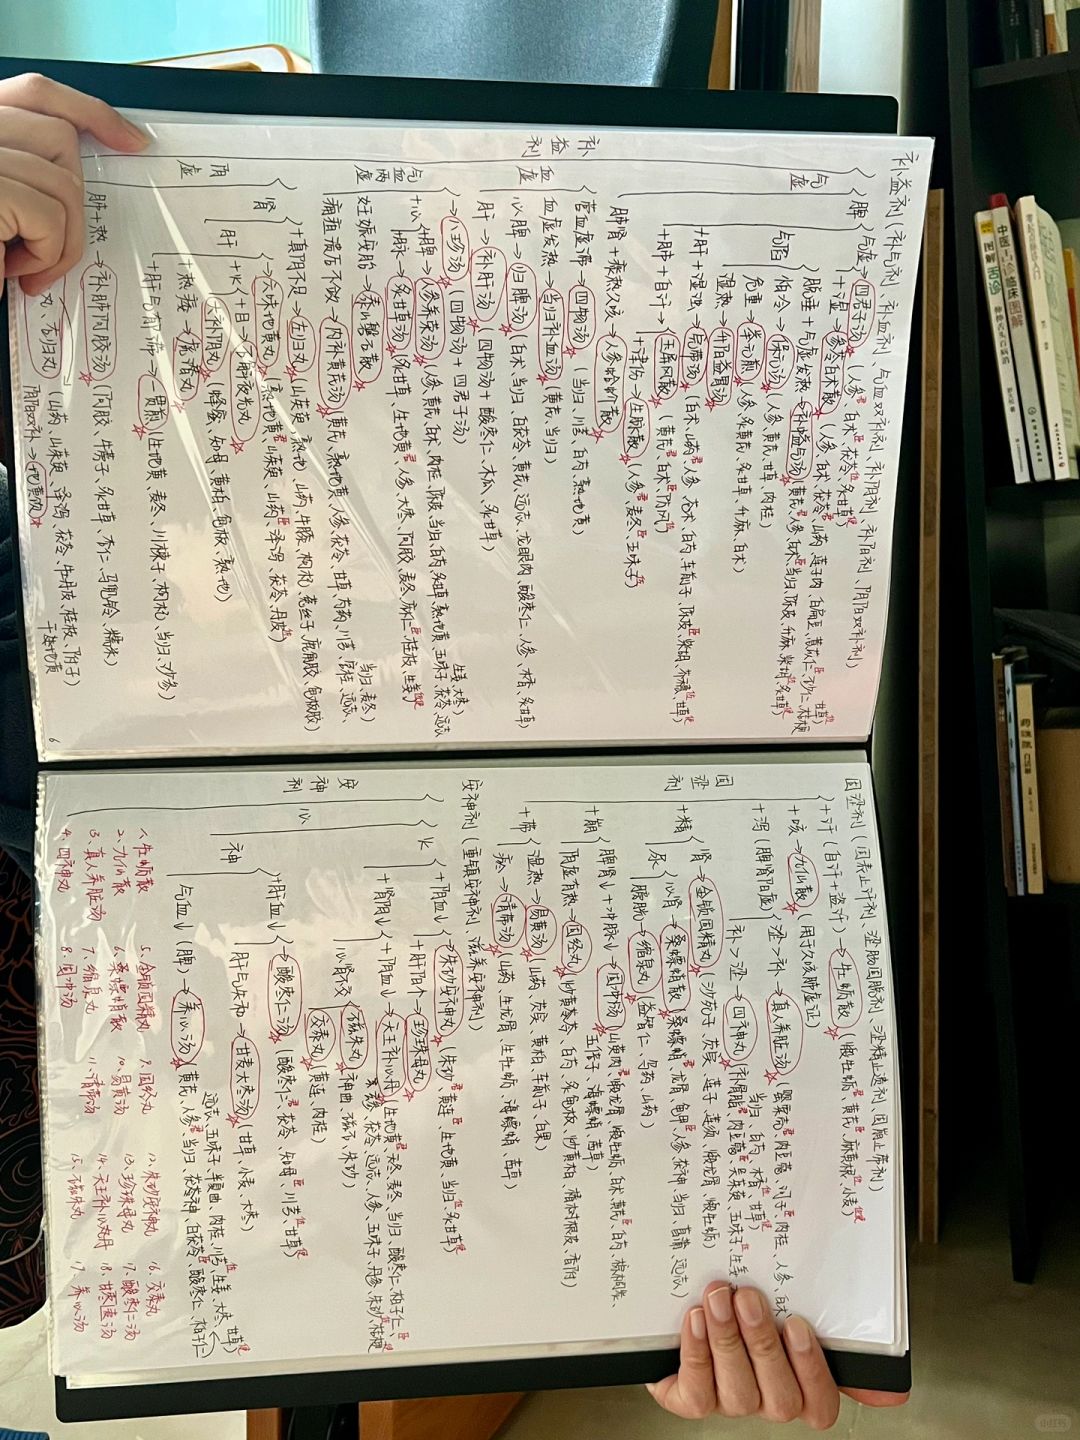 补益剂（补气剂、补血剂、气血双补剂、补阴剂、补阳剂、阴阳双补剂）
补益剂
气虚
脾
气虚→四君子汤（人参、白术、茯苓、炙甘草）
+湿→参苓白术散（人参、白术、茯苓、山药、莲子肉、白扁豆、薏苡仁、砂仁、桔梗、甘草）
脱垂+气虚发热→补益气汤（黄芪、人参、白术、当归、陈皮、升麻、柴胡、炙甘草）
气陷
阳冷→保元汤（人参、黄芪、甘草、肉桂）
危重→举元煎（人参、炙黄芪、炙甘草、升麻、白术）
湿热→升阳益胃汤
+肝+湿浊→完带汤（白术、山药、人参、苍术、白芍、车前子、陈皮、柴胡、荆芥、甘草）
+肺+自汗→玉屏风散（黄芪、白术、防风）
+津伤→生脉散（人参、麦冬、五味子）
肺肾+痰热久咳→人参蛤蚧散
血虚
营血虚滞→四物汤（当归、川芎、白芍、熟地黄）
血虚发热→当归补血汤（黄芪、当归）
心脾→归脾汤（白术、当归、白茯苓、黄芪、远志、龙眼肉、酸枣仁、人参、木香、炙甘草）
肝→补肝汤（四物汤+酸枣仁、木瓜、炙甘草）
气血两虚
→八珍汤（四物汤+四君子汤）
+心
+脾→人参养荣汤（人参、黄芪、白术、肉桂、陈皮、当归、白芍、炙甘草、熟地黄、五味子、茯苓、远志、生姜、大枣）
+脉→炙甘草汤（炙甘草、生地黄、人参、大枣、阿胶、麦冬、麻仁、桂枝、生姜）
妊娠安胎→泰山磐石散
痈疽溃后不敛→内补黄芪汤（黄芪、熟地黄、人参、茯苓、甘草、白芍药、川芎、官桂、远志、当归、麦冬）
阴虚
肾
+真阴不足→左归丸（山茱萸、熟地、山药、牛膝、枸杞、菟丝子、鹿角胶、龟板胶）
→六味地黄丸（熟地黄、山茱萸、山药、泽泻、茯苓、丹皮）
+目→石斛夜光丸
+火→大补阴丸（蜂蜜、知母、黄柏、龟板、熟地）
+热痿→虎潜丸
肝
+肝气郁滞→一贯煎（生地黄、麦冬、川楝子、枸杞、当归、沙参）
肺+热→补肺阿胶汤（阿胶、牛蒡子、炙甘草、杏仁、马兜铃、糯米）
丸、右归丸
（山药、山茱萸、泽泻、茯苓、牡丹皮、桂枝、附子）干地黄
阴阳双补→地黄饮
6
固涩剂（固表止汗剂、涩肠固脱剂、涩精止遗剂、固崩止带剂）
固涩剂
+汗（自汗+盗汗）→牡蛎散（煅牡蛎、黄芪、麻黄根、小麦）
+咳→九仙散（用于久咳肺虚证）
+泻（脾肾阳虚）
涩>补→真人养脏汤（罂粟壳、肉豆蔻、诃子、肉桂、人参、白术、当归、白芍、木香、甘草）
补>涩→四神丸（补骨脂、肉豆蔻、吴茱萸、五味子、生姜、
+精
肾→金锁固精丸（沙苑子、芡实、莲子、莲须、煅龙骨、煅牡蛎）
尿
心肾→桑螵蛸散（桑螵蛸、龙骨、龟甲、人参、茯神、当归、菖蒲、远志）
膀胱→缩泉丸（益智仁、乌药、山药）
+崩
脾肾↓+冲脉↓→固冲汤（山萸肉、煅龙骨、煅牡蛎、白术、黄芪、白芍、棕榈炭、五倍子、海螵蛸、茜草）
阴虚有热→固经丸（炒黄芩、白芍、炙龟板、炒黄柏、椿树根皮、香附）
+带
湿热→易黄汤（山药、芡实、黄柏、车前子、白果）
→清带汤（山药、生龙骨、生牡蛎、海螵蛸、茜草）
安神剂（重镇安神剂、滋养安神剂）
安神剂
心
火
+阴血↓→朱砂安神丸（朱砂、黄连、生地黄、当归、炙甘草）
+肝阳↑→珍珠母丸
+肾阴↓
+阴血↓→天王补心丹（生地黄、天冬、麦冬、当归、酸枣仁、柏子仁、玄参、茯苓、远志、人参、五味子、丹参、朱砂、桔梗）
心肾不交
磁朱丸（神曲、磁石、朱砂）
交泰丸（黄连、肉桂）
神
+肝血↓→酸枣仁汤（酸枣仁、茯苓、知母、川芎、甘草）
肝气失和→甘麦大枣汤（甘草、小麦、大枣）
气血↓（脾）→养心汤（黄芪、人参、当归、茯苓神、白茯苓、酸枣仁、柏子仁、远志、五味子、半夏曲、肉桂、川芎、生姜、大枣、甘草）
1、牡蛎散
2、九仙散
3、真人养脏汤
4、四神丸
5、金锁固精丸
6、桑螵蛸散
7、缩泉丸
8、固冲汤
9、固经丸
10、易黄汤
11、清带汤
12、朱砂安神丸
13、珍珠母丸
14、天王补心丹
15、磁朱丸
16、交泰丸
17、酸枣仁汤
18、甘麦枣汤
17、养心汤
图解舌诊
中医
临床图解
小红书